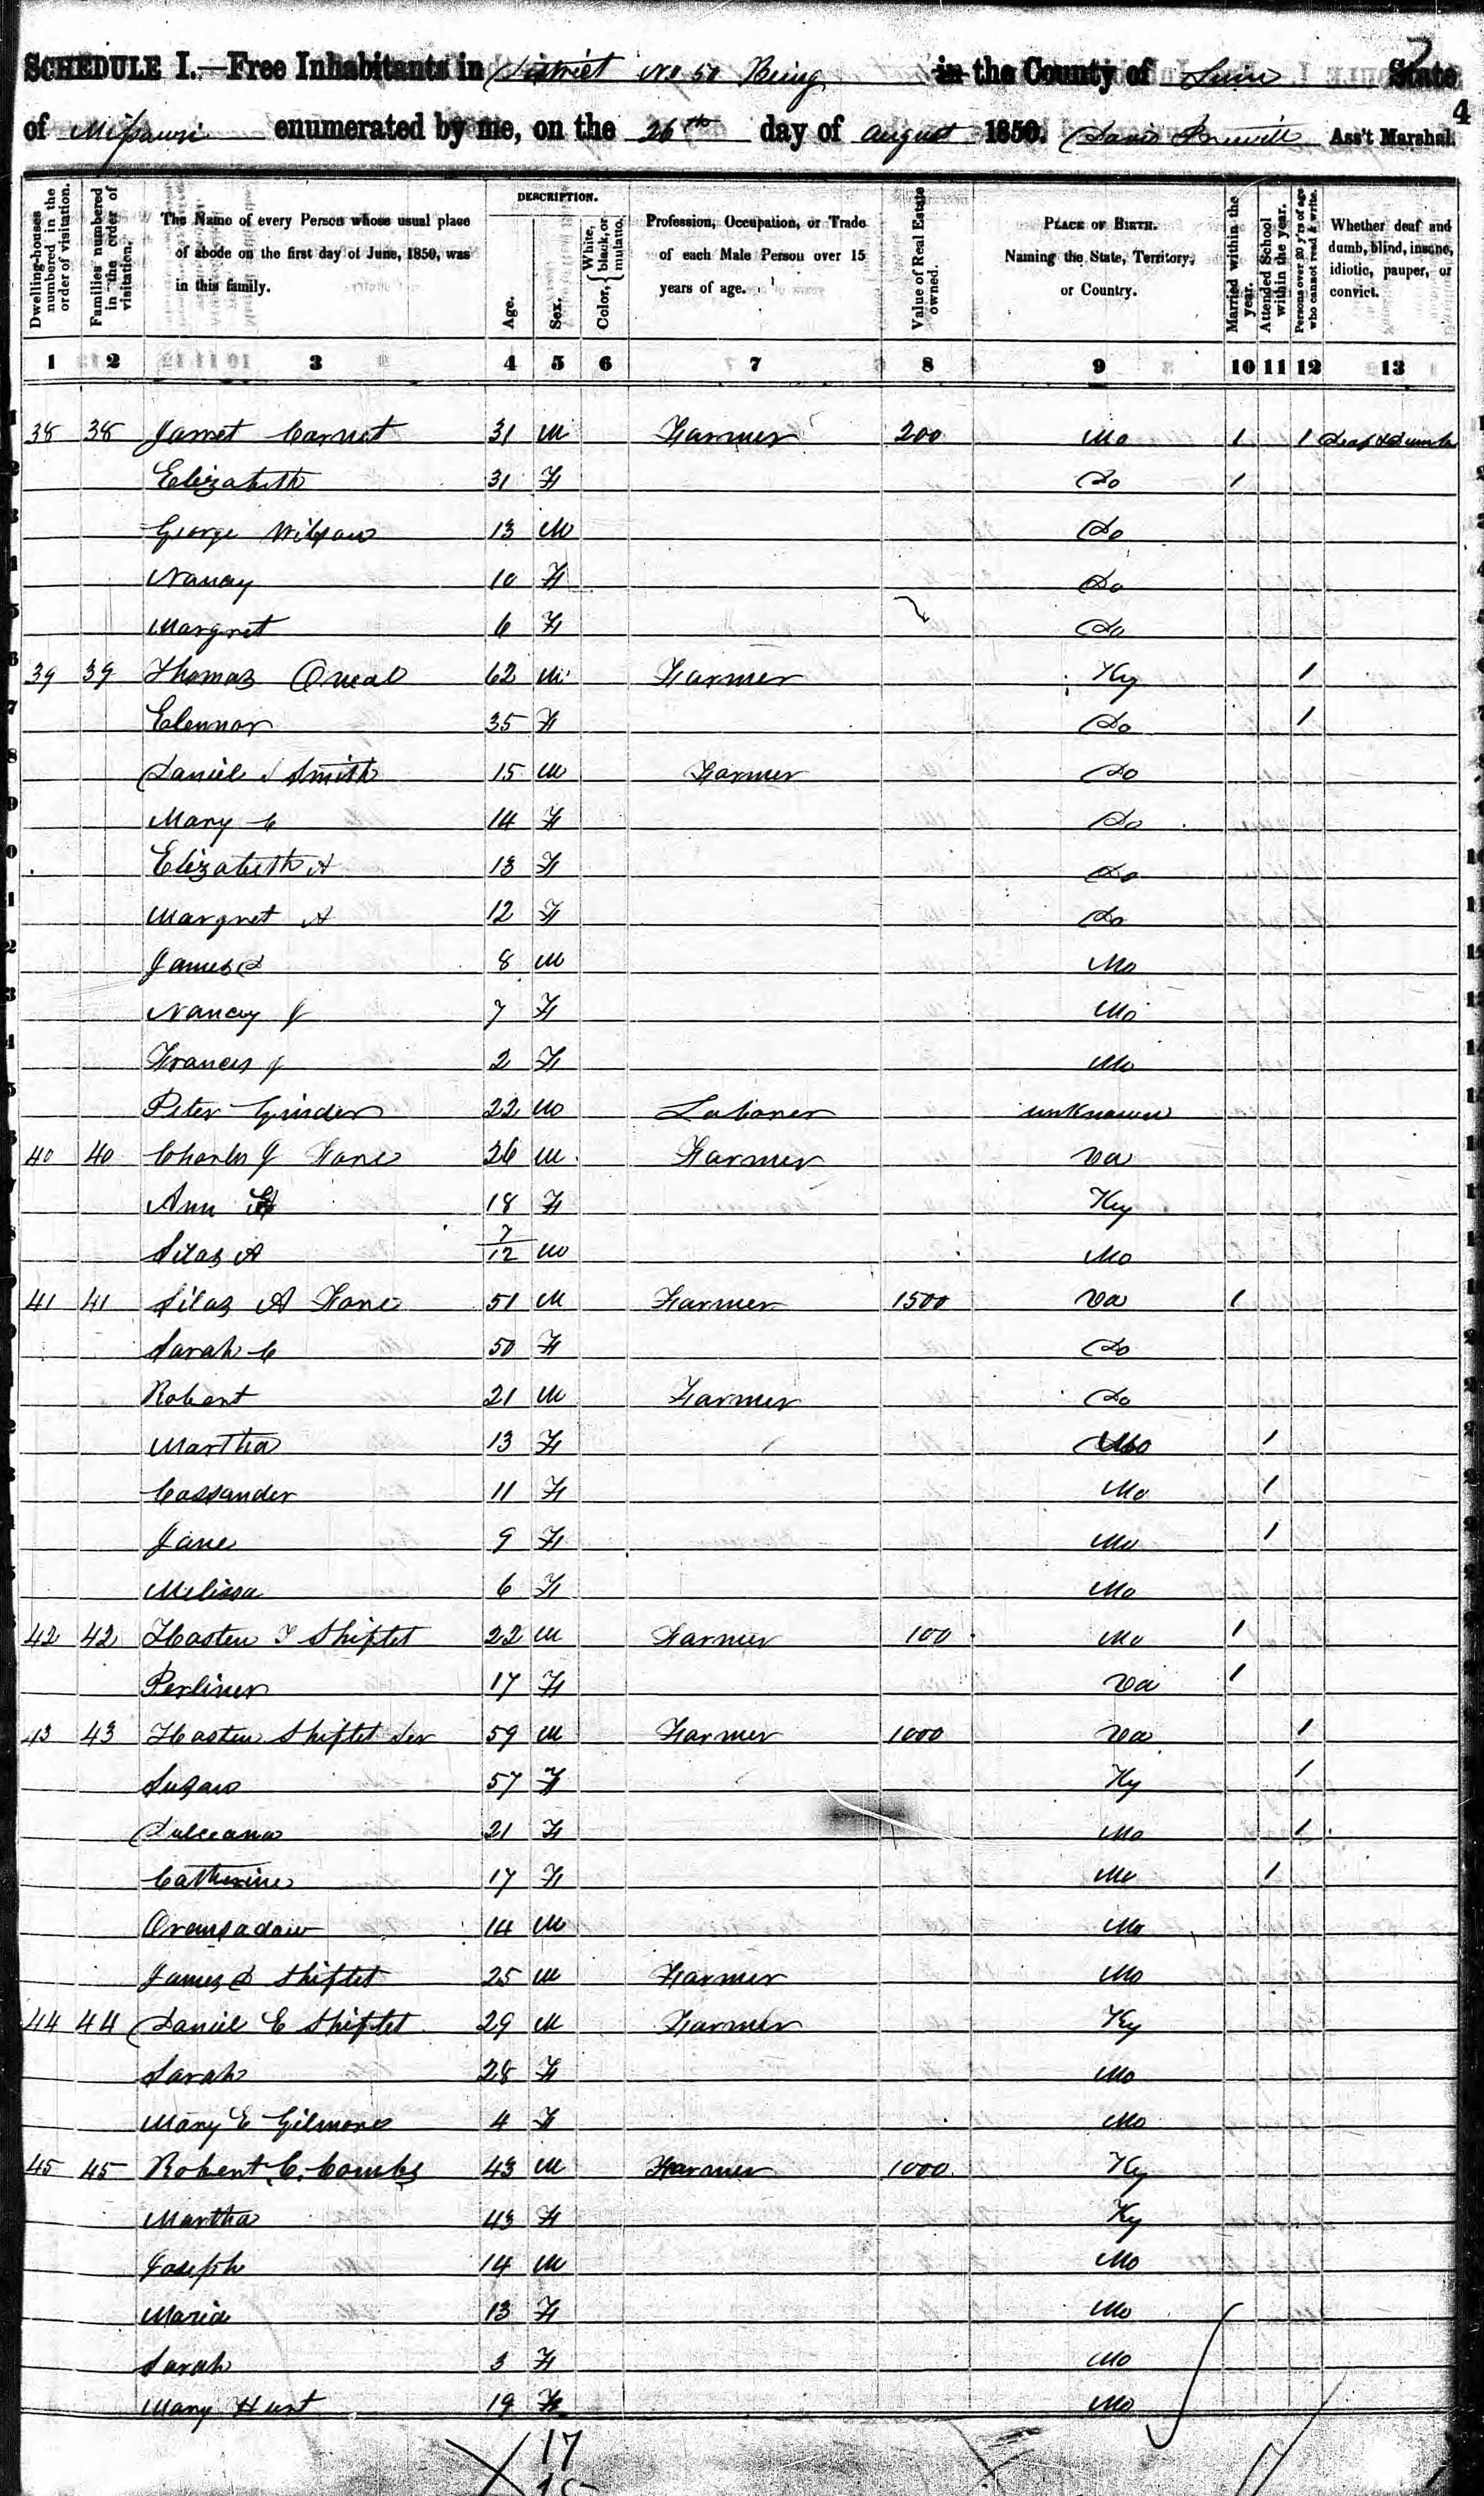 SCHEDULE I.—Free Inhabitants in District No 50 Being in the County of State
of Missouri enumerated by me, on the 26th day of August 1850. David Ass't Marshal.
4
Dwelling-houses numbered in the order of visitation.
Families numbered in the order of visitation.
The Name of every Person whose usual place of abode on the first day of June, 1850, was in this family.
DESCRIPTION.
Age.
Sex.
Color, { White, black, or mulatto.
Profession, Occupation, or Trade of each Male Person over 15 years of age.
Value of Real Estate owned.
PLACE OF BIRTH. Naming the State, Territory, or Country.
Married within the year.
Attended School within the year.
Persons over 20 y'rs of age who cannot read & write.
Whether deaf and dumb, blind, insane, idiotic, pauper, or convict.
1 2 3 4 5 6 7 8 9 10 11 12 13
38 38 31 M Farmer 200 Mo 1 1 Deaf & Dumb
Elizabeth 31 F Do 1
George Wilson 13 M Do
Nancy 10 F Do
Margret 6 F Do
39 39 Thomas Oneal 62 M Farmer Ky 1
Elennor 35 F Do 1
Daniel Smith 15 M Farmer Do
Mary C 14 F Do
Elizabeth A 13 F Do
Margret A 12 F Do
James D 8 M Mo
Nancy J 7 F Mo
Francis J 2 F Mo
Peter Grinder 22 M Laborer unknown
40 40 Charles J Fane 26 M Farmer Va
Ann 18 F Ky
Silas A 7/12 M Mo
41 41 Silas A Fane 51 M Farmer 1500 Va 1
Sarah C 50 F Do
Robert 21 M Farmer Do
Martha 13 F Mo 1
Cassander 11 F Mo 1
Jane 9 F Mo 1
Melissa 6 F Mo
42 42 Hasten F Shiflet 22 M Farmer 100 Mo 1
Perliner 17 F Va 1
43 43 Hasten Shiflet Ser 59 M Farmer 1000 Va 1
Susan 57 F Ky 1
Dulceana 21 F Mo 1
Catherine 17 F Mo 1
14 M Mo
James D Shiflet 25 M Farmer Mo
44 44 Daniel E Shiflet 29 M Farmer Ky
Sarah 28 F Mo
Mary E Gilmore 4 F Mo
45 45 Robert C. Combs 43 M Farmer 1000 Ky
Martha 43 F Ky
Joseph 14 M Mo
Maria 13 F Mo
Sarah 3 F Mo
Mary Hunt 19 F Mo
17